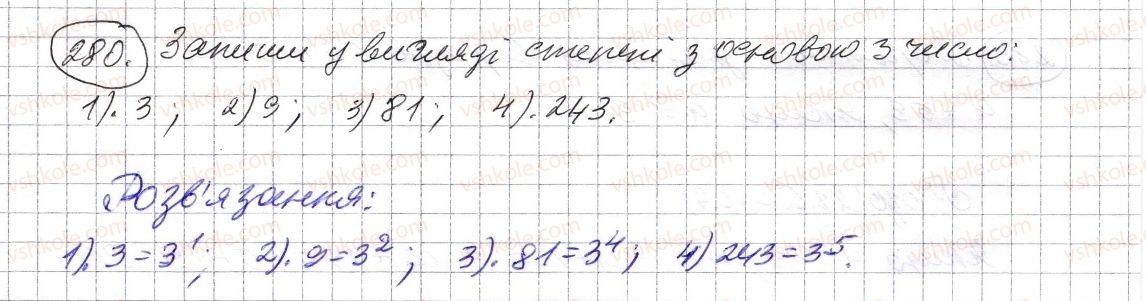 280. Запиши у вигляді степені з основою 3 число:
1). 3; 2) 9; 3) 81; 4). 243.
Розв'язання:
1). 3 = 3¹; 2). 9 = 3²; 3). 81 = 3⁴; 4) 243 = 3⁵.